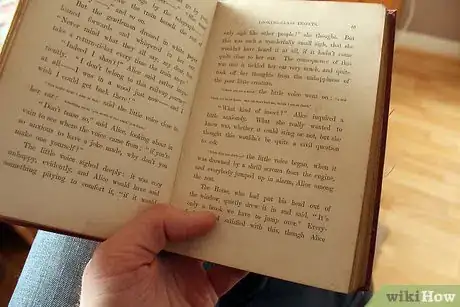 But the gentleman dressed in white paper
leaned forwards and whispered in his ear,
"Never mind what they all say, my dear, but
take a return-ticket every time the train stops."
"Indeed I shan't!" Alice said rather impa-
tiently. "I don't belong to this railway journey
at all—I was in a wood just now—and I
wish I could get back there!"
said the little voice close to
her ear;
"Don't tease so," said Alice, looking about in
vain to see where the voice came from; "if you're
so anxious to have a joke made, why don't you
make one yourself?"
The little voice sighed deeply: it was very
unhappy, evidently, and Alice would have said
something pitying to comfort it, "if it would
LOOKING-GLASS INSECTS.
only sigh like other people!" she thought. But
this was such a wonderfully small sigh, that she
wouldn't have heard it at all, if it hadn't come
quite close to her ear. The consequence of this
was that it tickled her ear very much, and quite
took off her thoughts from the unhappiness of
the poor little creature.
the little voice went on;
"What kind of insect?" Alice inquired a
little anxiously. What she really wanted to
know was, whether it could sting or not, but she
thought this wouldn't be quite a civil question
to ask.
the little voice began, when it
was drowned by a shrill scream from the engine,
and everybody jumped up in alarm, Alice among
the rest.
The Horse, who had put his head out of
the window, quietly drew it in and said, "It's
only a brook we have to jump over." Every-
satisfied with this, though Alice
wikiHow